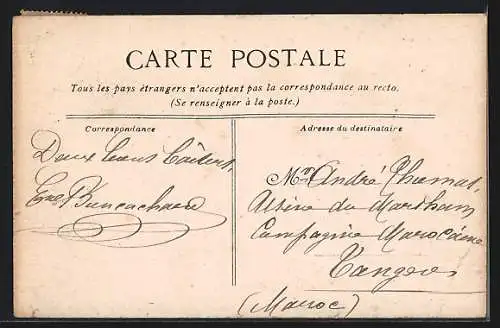 CARTE POSTALE
Tous les pays étrangers n'acceptent pas la correspondance au recto.
(Se renseigner à la poste.)
Correspondance
Adresse du destinataire
Doux
Mr André Thomas,
du
Compagnie Marocaine
Tanger
(Maroc)